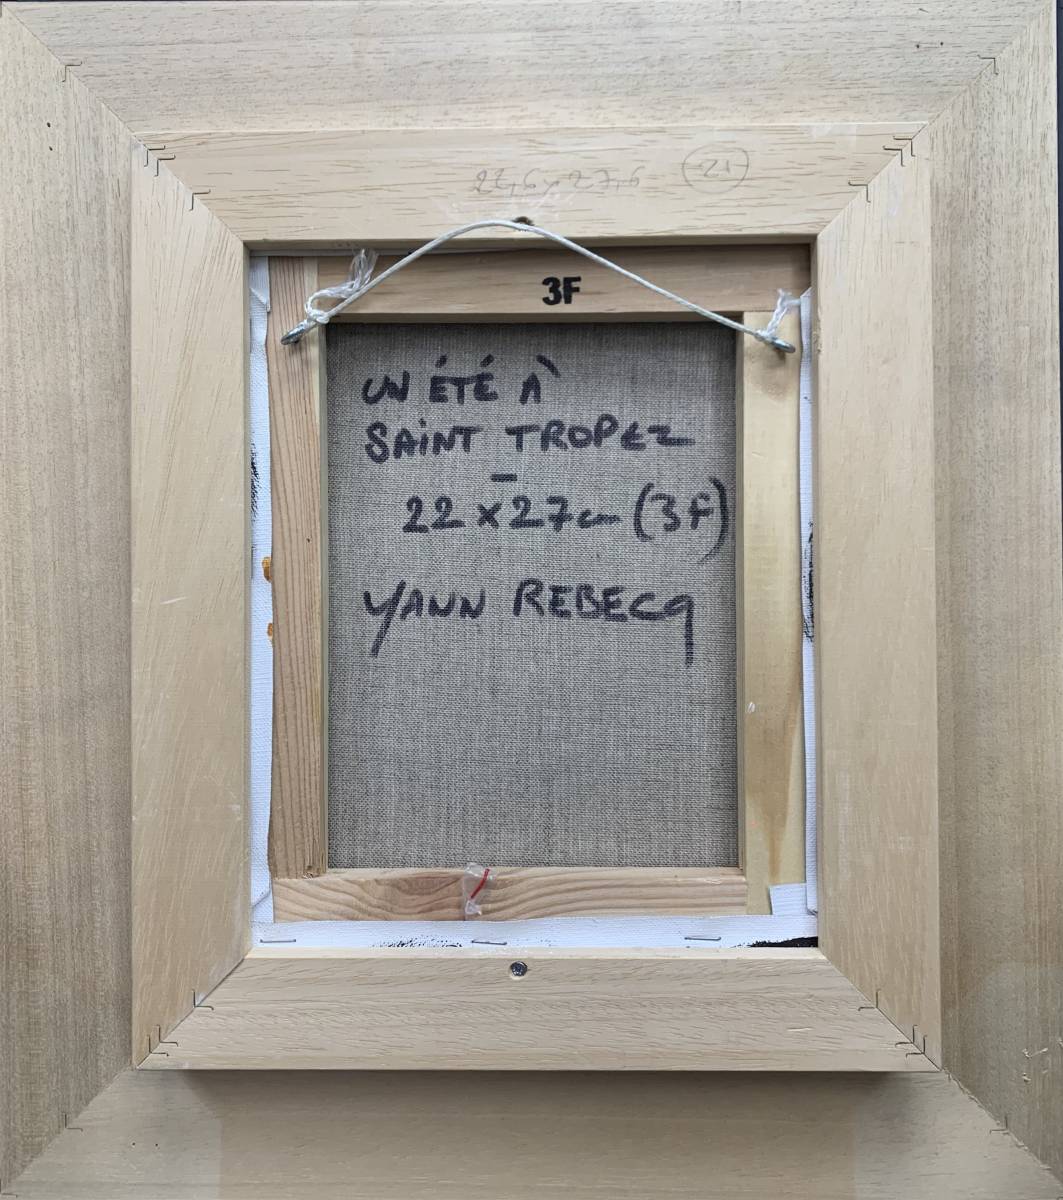 22,6 x 27,6 21
3F
UN ÉTÉ À
SAINT TROPEZ
-
22 x 27 cm (3F)
YANN REBECQ